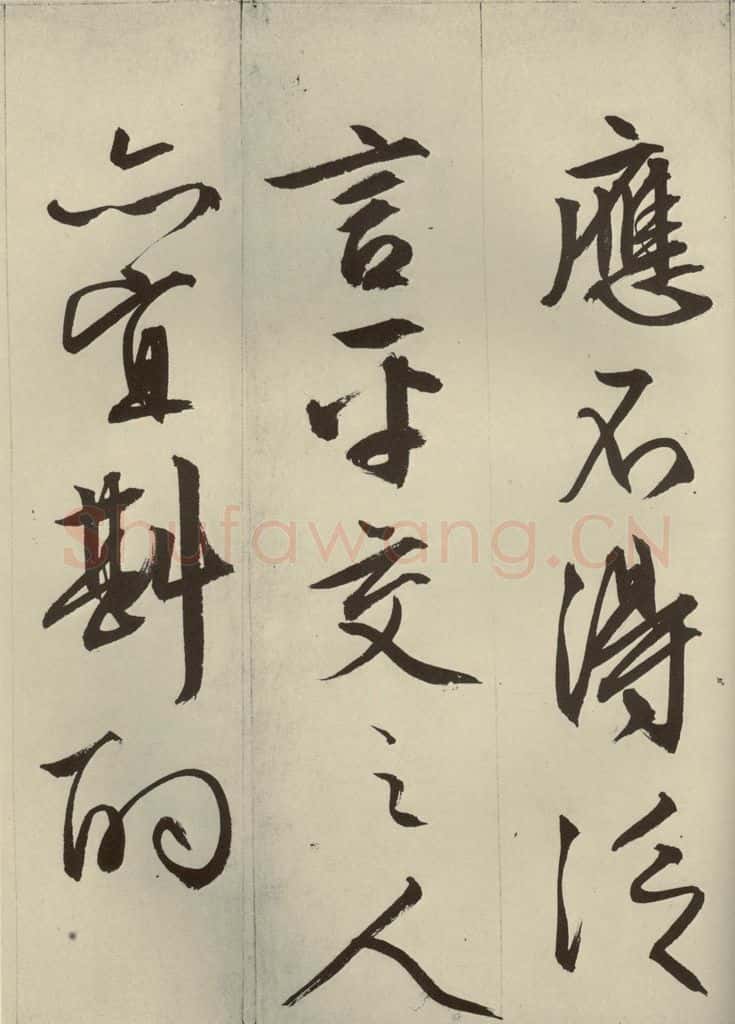 應不得泛
言平交之人
亦宜斟酌
Shufawang.CN